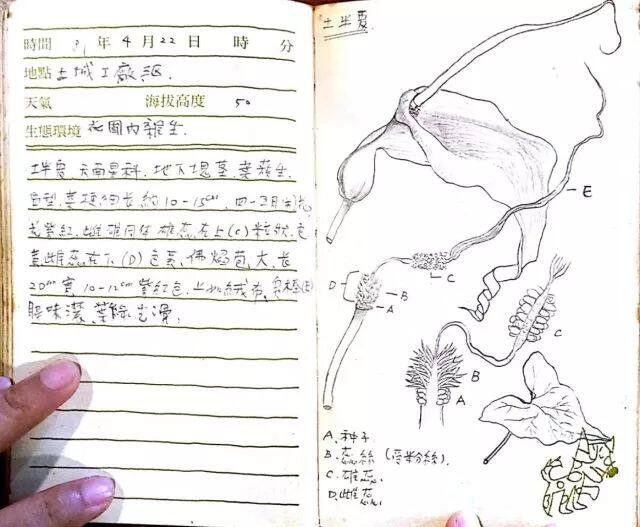 時間 81 年 4 月 22 日 時 分
地點 土城工廠區.
天氣 海拔高度 50
生態環境 花園內雜生.
土半夏. 天南星科. 地下塊莖. 葉叢生.
長約10-15cm. 四-五月
紫紅. 雌雄同 雄蕊在上(C)粒狀.
雌蕊在下(D)色黃. 佛焰苞大. 長
20cm 寬10-12cm 紫紅色. 上如絨布. (E)
腥味濃. 葉綠光滑.
土半夏.
E
C
D
B
A
C
B
A
A. 种子
B. 蕊絲 (受粉絲).
C. 雄蕊.
D. 雌蕊.